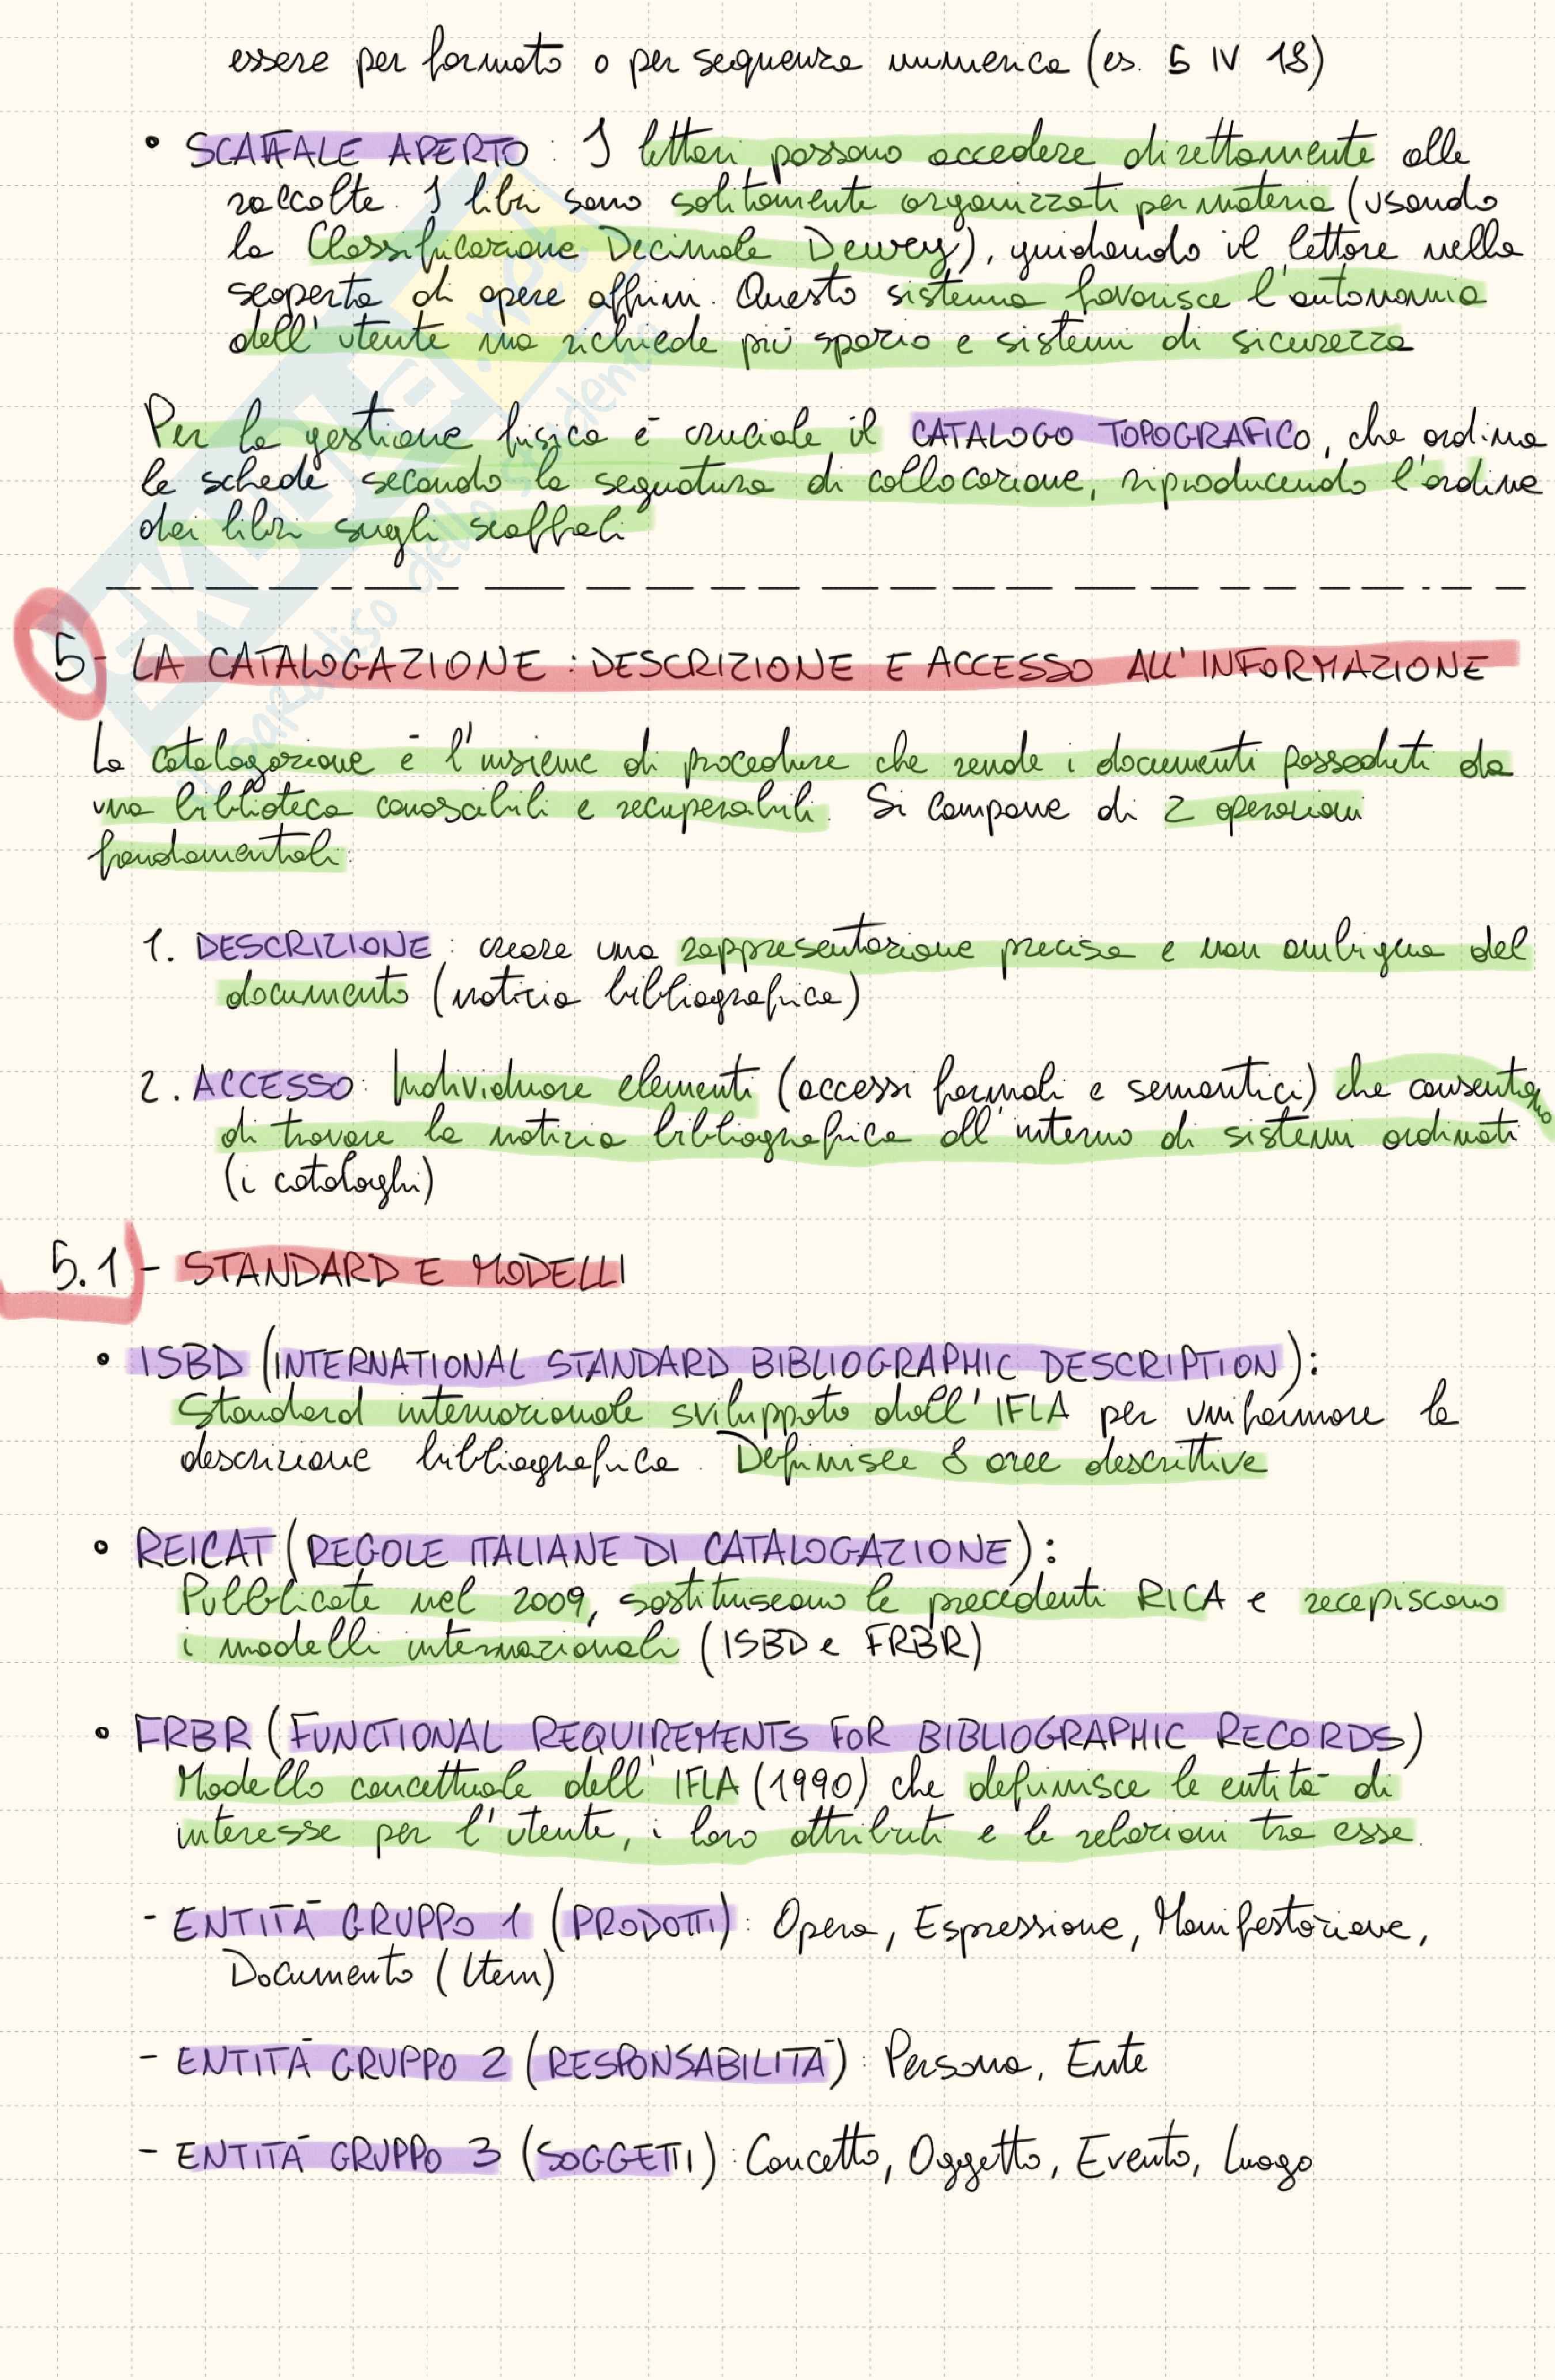 essere per formato o per sequenza numerica (es. 5 IV 18)
• SCAFFALE APERTO: I lettori possono accedere direttamente alle
raccolte. I libri sono solitamente organizzati per materia (usando
la Classificazione Decimale Dewey), guidando il lettore nella
scoperta di opere affini. Questo sistema favorisce l'autonomia
dell'utente ma richiede più spazio e sistemi di sicurezza
Per la gestione fisica è cruciale il CATALOGO TOPOGRAFICO, che ordina
le schede secondo la segnatura di collocazione, riproducendo l'ordine
dei libri sugli scaffali
5 - LA CATALOGAZIONE: DESCRIZIONE E ACCESSO ALL'INFORMAZIONE
La catalogazione è l'insieme di procedure che rende i documenti posseduti da
una biblioteca conoscibili e recuperabili. Si compone di 2 operazioni
fondamentali:
1. DESCRIZIONE: creare una rappresentazione precisa e non ambigua del
documento (notizia bibliografica)
2. ACCESSO: Individuare elementi (accessi formali e semantici) che consentono
di trovare la notizia bibliografica all'interno di sistemi ordinati
(i cataloghi)
5.1 - STANDARD E MODELLI
• ISBD (INTERNATIONAL STANDARD BIBLIOGRAPHIC DESCRIPTION):
Standard internazionale sviluppato dall'IFLA per uniformare la
descrizione bibliografica. Definisce 8 aree descrittive
• REICAT (REGOLE ITALIANE DI CATALOGAZIONE):
Pubblicate nel 2009, sostituiscono le precedenti RICA e recepiscono
i modelli internazionali (ISBD e FRBR)
• FRBR (FUNCTIONAL REQUIREMENTS FOR BIBLIOGRAPHIC RECORDS)
Modello concettuale dell'IFLA (1990) che definisce le entità di
interesse per l'utente, i loro attributi e le relazioni tra esse.
- ENTITÀ GRUPPO 1 (PRODOTTI): Opera, Espressione, Manifestazione,
Documento (Item)
- ENTITÀ GRUPPO 2 (RESPONSABILITÀ): Persona, Ente
- ENTITÀ GRUPPO 3 (SOGGETTI): Concetto, Oggetto, Evento, Luogo